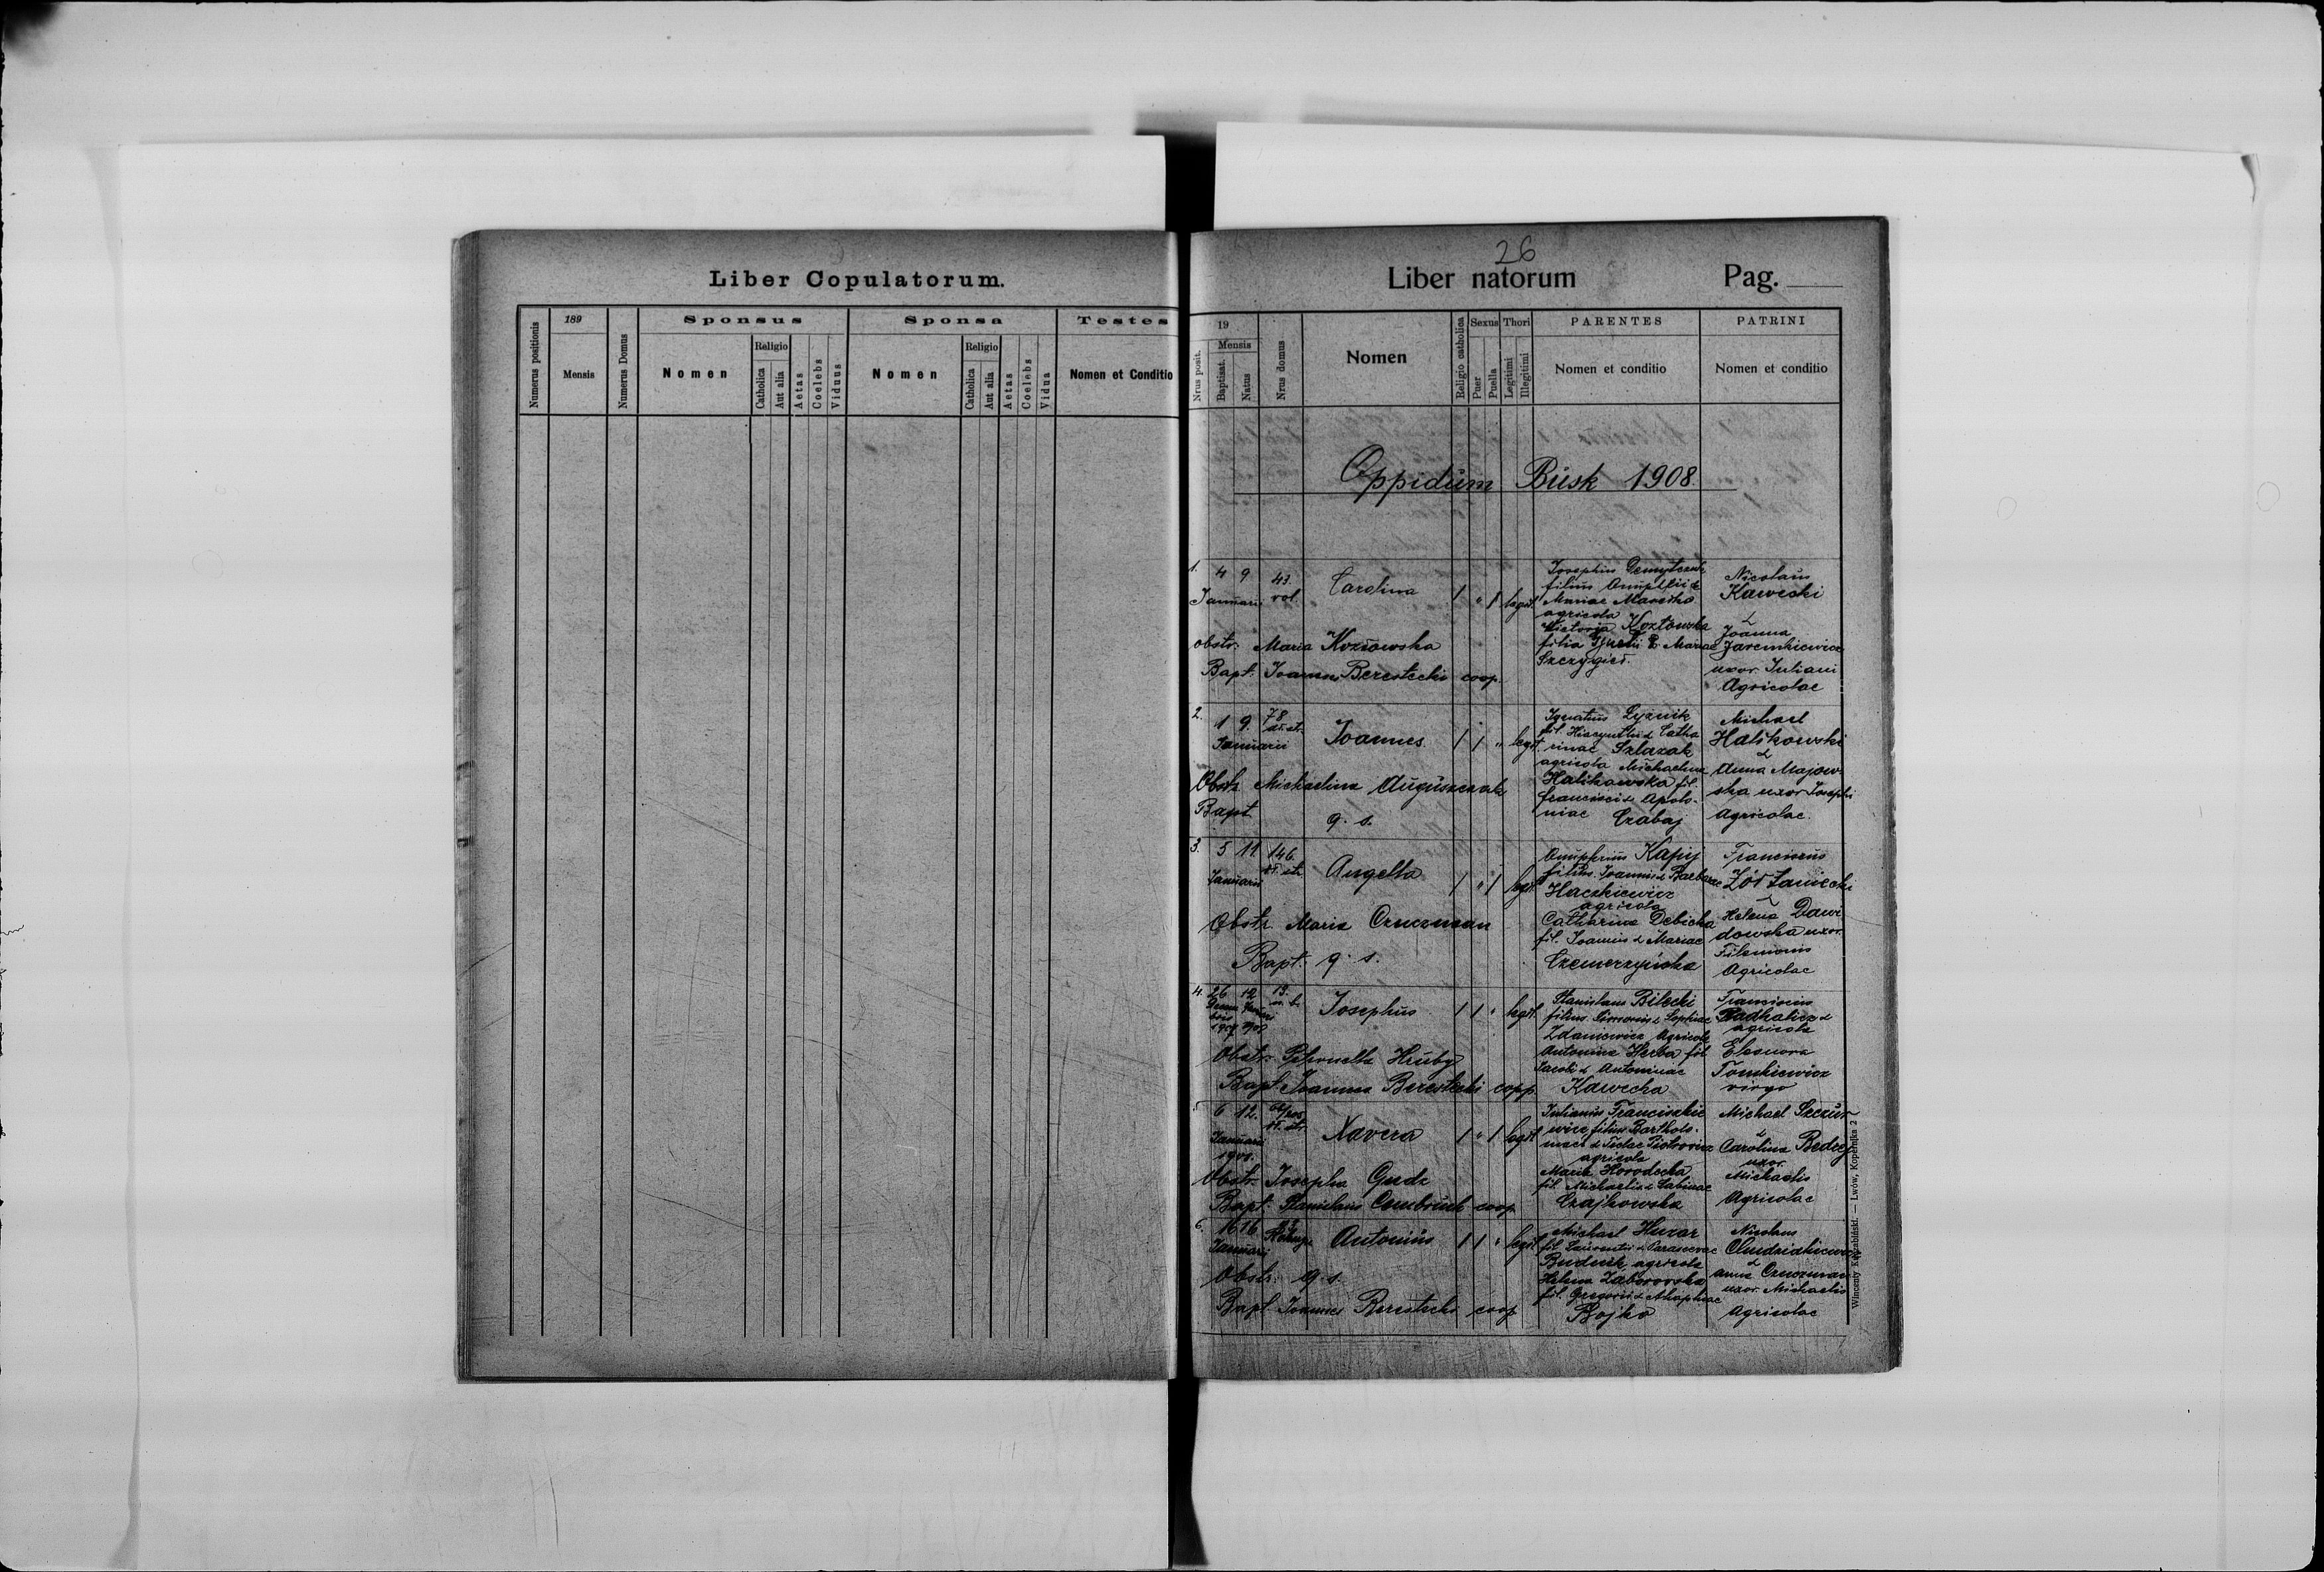 Liber Copulatorum.
Numerus positionis
189
Mensis
Numerus Domus
Sponsus
Nomen
Religio
Catholica
Aut alia
Aetas
Coelebs
Viduus
Sponsa
Nomen
Religio
Catholica
Aut alia
Aetas
Coelebs
Vidua
Testes
Nomen et Conditio
26
Liber natorum
Pag.
Nrus posit.
19
Mensis
Baptisat.
Natus
Nrus domus
Nomen
Religio catholica
Sexus
Puer
Puella
Thori
Legitimi
Illegitimi
PARENTES
Nomen et conditio
PATRINI
Nomen et conditio
Oppidum Busk 1908.
1.
4 9
Januarii
43.
vol.
Carolina
1 " 1 legit.
filius
Mariae
agricola
Victoria Kozłowska
filia Mariae
Szczygieł.
Nicolaus
Kawecki
&
Joanna
Jaremkiewicz
uxor Juliani
Agricolae
obstr. Maria Kozłowska
Bapt. Joannes Berestecki coop.
2.
1 9.
Januarii
78
Joannes
1 1 " legit.
Ignatius
fil. Hiacynthi & Catha
rinae Szlazak
agricola Michaelina
Halikowska fil.
Francisci & Apolo-
niae Czabaj
Michael
Halikowski
&
Anna Majow-
ska uxor Josephi
Agricolae.
Obstr. Michaelina Auguszczak
Bapt q. s.
3.
5 11
Januarii
146.
Angella
1 " 1 legit.
Onuphrius Kapij
filius Joannis & Barbarae
Haczkiewicz
agricola
Catharina Debicka
fil. Joannis & Mariae
Czemerzyńska
Franciscus
&
Helena Dawi
dowska uxor.
Filemonis
Agricolae
Obstr. Maria Czuczman
Bapt. q. s.
4.
26 12
1907 1908
19.
Josephus
1 1 " legit.
Stanislaus Bilecki
filius Simonis & Sophiae
Zdaniewicz Agricola
Antonina Herba fil.
Caroli & Antoninae
Kawecka
Franciscus
Radkalicz &
agricola
Eleonora
Tomkiewicz
virgo
Obstr. Petronella Hruby
Bapt. Joannes Berestecki copp.
5
6 12.
Januarii
1908.
Xavera
1 " 1 legit
Julianus Franciszkie
wicz filius Bartholo-
maei & Teclae Piotrowicz
agricola
Maria Horodecka
fil. Michaelis & Sabinae
Czajkowska
Michael Szczur
&
Carolina Bedrij
uxor.
Michaelis
Agricolae
Obstr. Josepha Gudz
Bapt. Stanislaus coop
6.
16 16
Januarii
Antonius
1 1 " legit
Michael Huzar
fil. Laurentii & Parascevae
Budnik agricola
Helena Zaborowska
fil. Gregorii & Ahaphiae
Bojko
Nicolaus
&
Anna Czuczman
uxor. Michaelis
Agricolae
Obstr. q. s.
Bapt. Joannes Berestecki coop
Wincenty Kornabiński. — Lwów, Kopernika 2